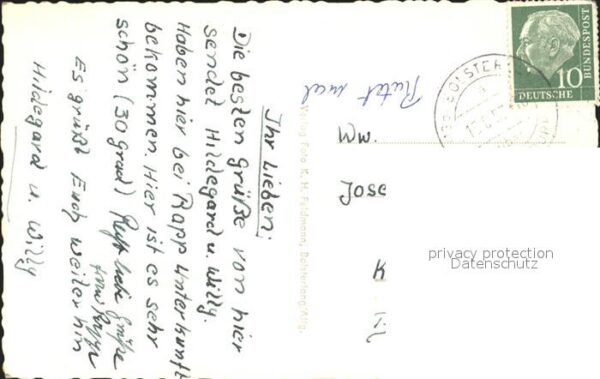 Ihr Lieben:
Die besten Grüße von hier
sendet Hildegard u. Willy.
Haben hier bei Rapp Unterkunft
bekommen. Hier ist es sehr
schön (30 grad) Recht liebe Grüße
Frau Rapp
Es grüßt Euch weiterhin
Hildegard u. Willy
Verlag Foto K. H. Feldmann, Bolsterlang/Allg.
BOLSTER
10
DEUTSCHE
BUNDESPOST
Ww.
Jose
K
privacy protection
Datenschutz